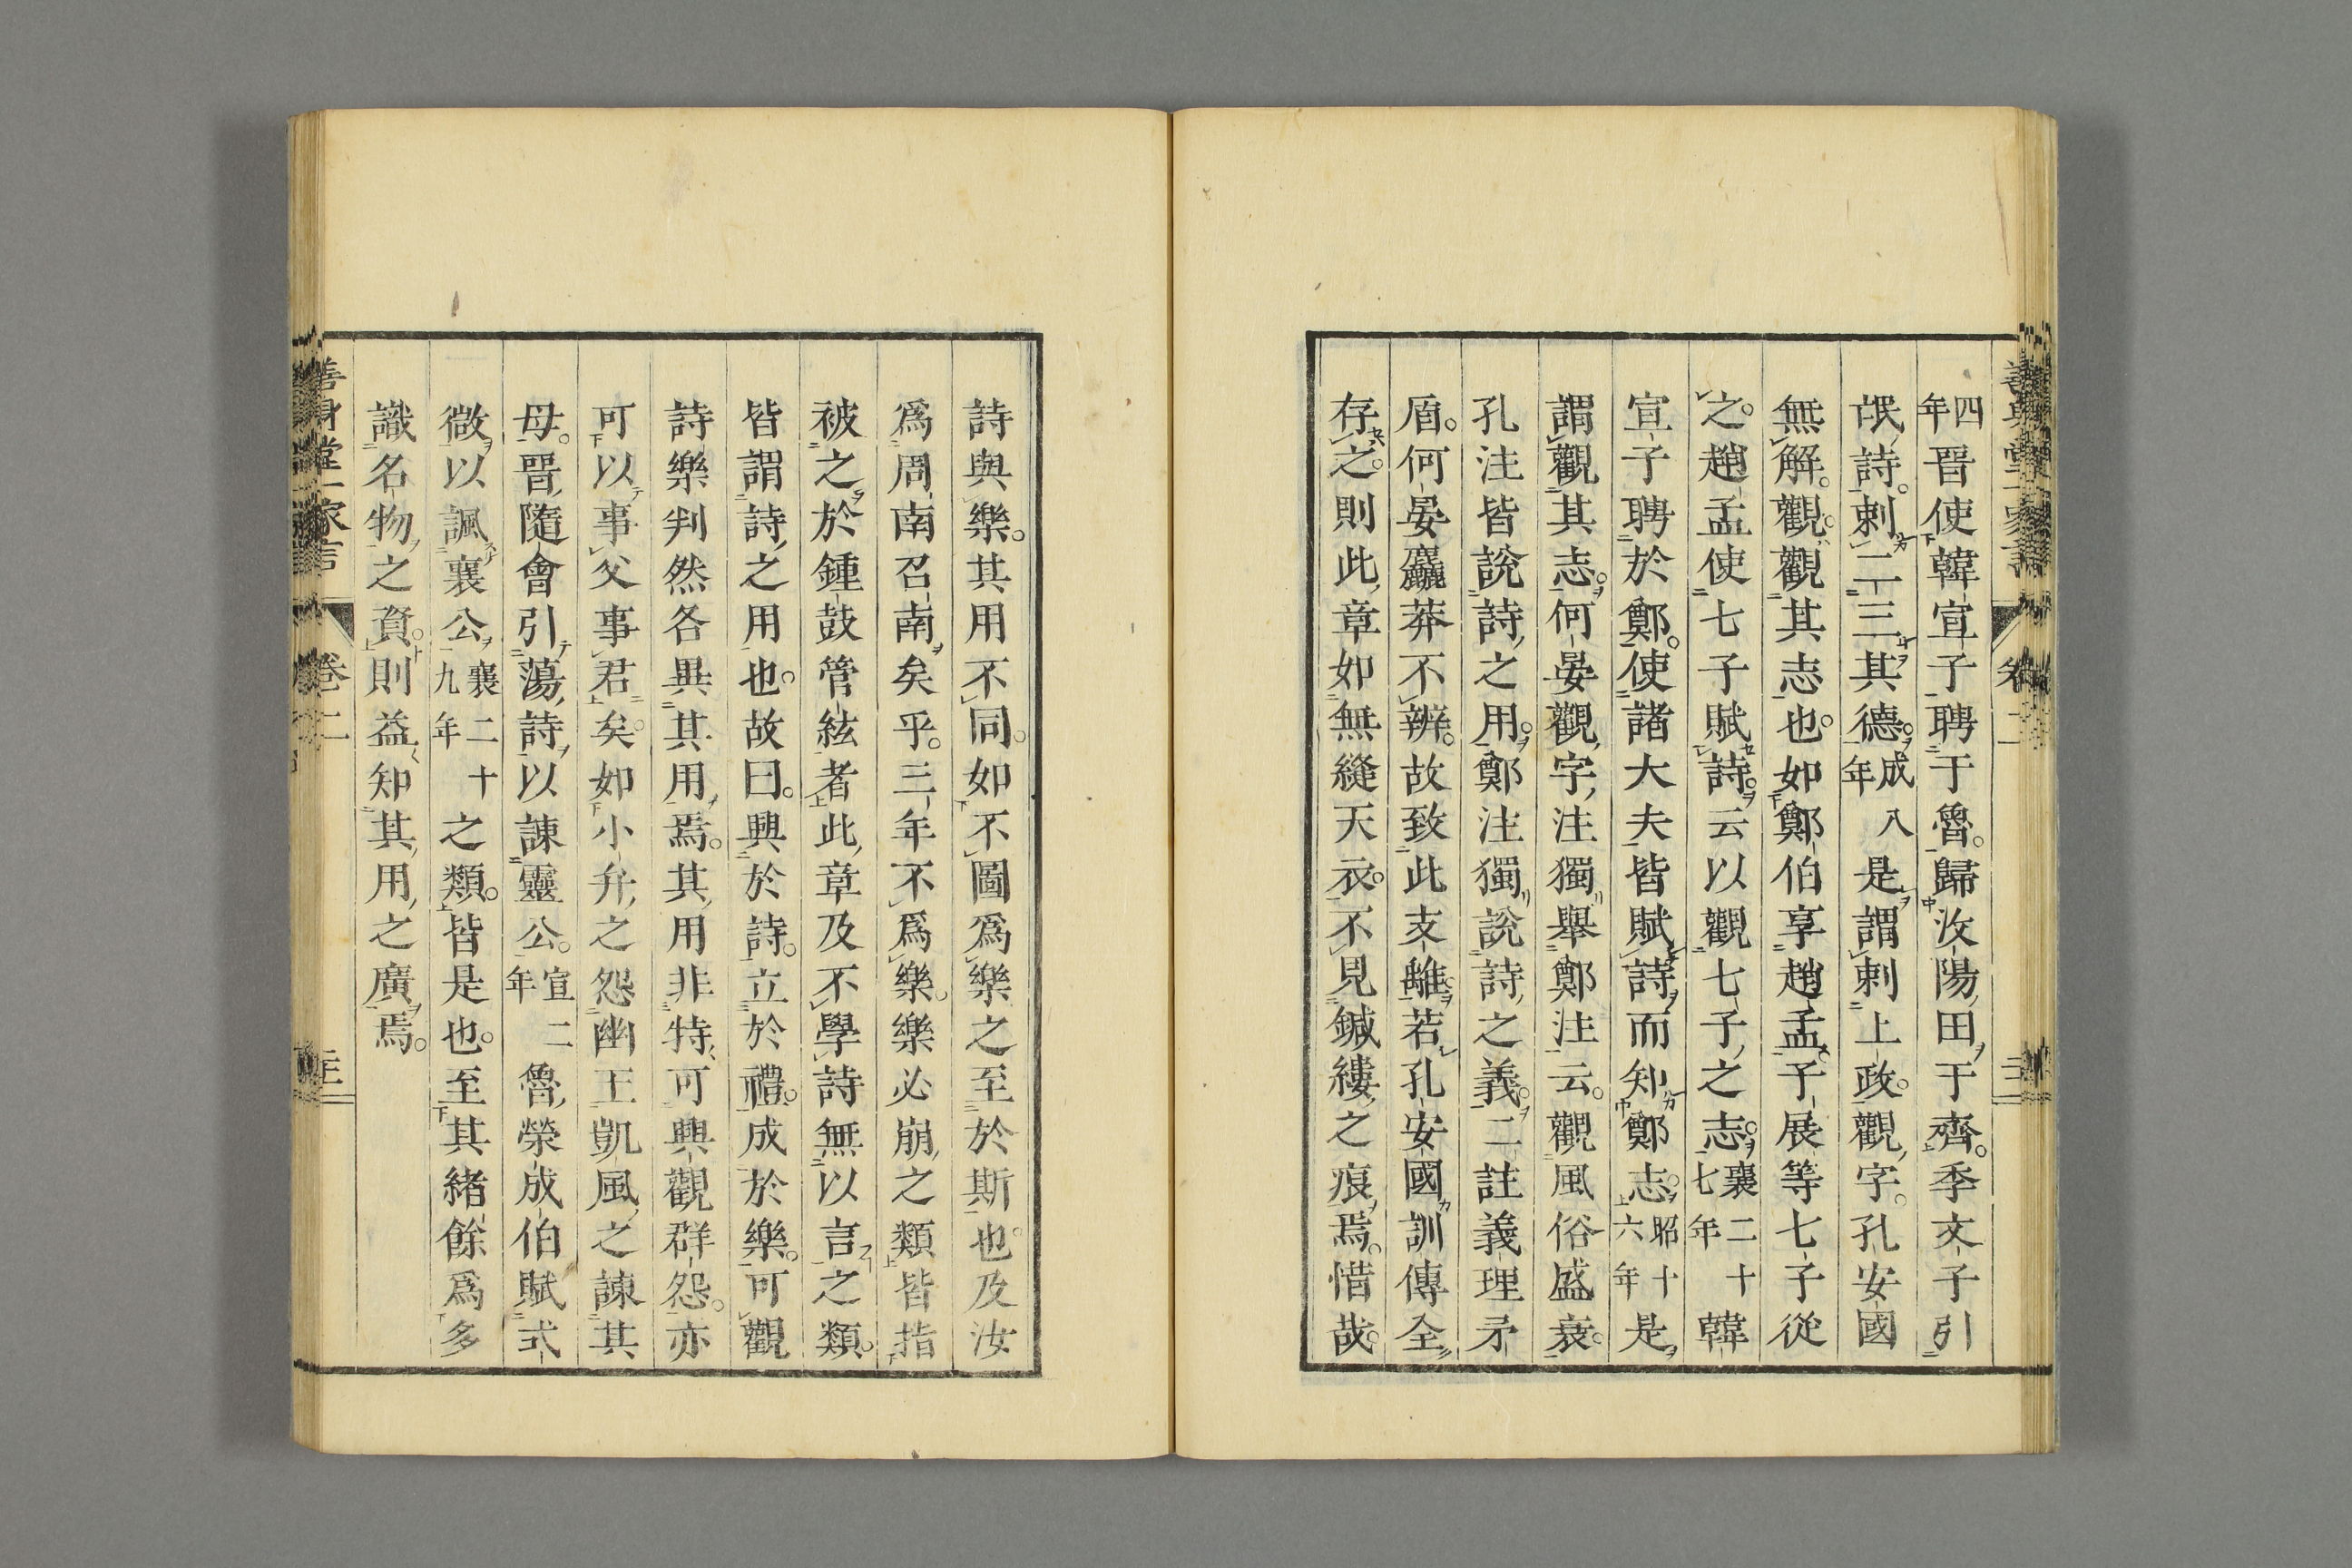 四年晋使韓宣子聘于魯。歸汶陽田于齊。季文子引
氓詩。刺二三其德。成八年是謂刺上政。觀字。孔安國
無解。觀。觀其志也。如鄭伯享趙孟于展等七子從
之。趙孟使七子賦詩。云以觀七子之志。襄二十七年韓
宣子聘於鄭。使諸大夫皆賦詩而知鄭志。昭十六年是
謂觀其志。何晏觀字注獨舉鄭注云。觀風俗盛衰。
孔注皆說詩之用。鄭注獨說詩之義。二註義理矛
盾。何晏麤莽不辨。故致此支離。若孔安國訓傳全
存之。則此章如無縫天衣。不見鍼縷之痕焉。惜哉。
詩與樂。其用不同。如不圖爲樂之至於斯也。及汝
爲周南召南矣乎。三年不爲樂。樂必崩之類皆指
被之於鍾鼓管絃者此章及不學詩無以言之類。
皆謂詩之用也。故曰。興於詩。立於禮。成於樂。可觀
詩樂判然各異其用焉。其用非特可興觀群怨。亦
可以事父事君矣。如小弁之怨幽王凱風之諫其
母。晋隨會引蕩詩以諫靈公。宣二年魯榮成伯賦式
微以諷襄公襄二十九年之類。皆是也。至其緒餘爲多
識名物之資。則益知其用之廣焉。
善身堂一家言 卷二